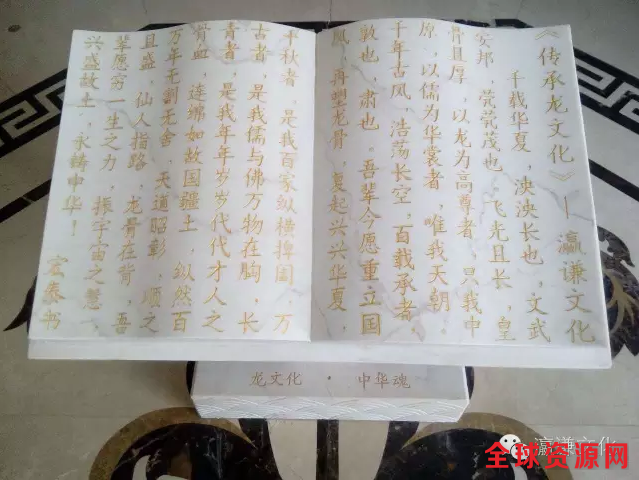 《传承龙文化》—瀛谦文化
千载华夏，泱泱长也，文武
安邦，茕茕茂也。飞光且长，皇
骨且厚，以龙为高尊者，只我中
原，以儒为华衮者，唯我天朝。
千年古风，浩荡长空，百载承者，
数也，肃也。吾辈今愿重立国
风，再塑龙骨，复起兴兴华夏，
千秋者，是我百家纵横捭阖，万
古者，是我儒与佛万物在胸，长
青者，是我年年岁岁代代才人之
骨血，连绵如故国疆土，纵然百
万年无割无舍，天道昭彰，顺之
且盛，仙人指路，龙骨在背，吾
辈愿穷一生之力，振宇宙之慧，
兴盛故土，永铸中华！ 宏泰书
龙文化·中华魂
瀛谦文化
全球资源网